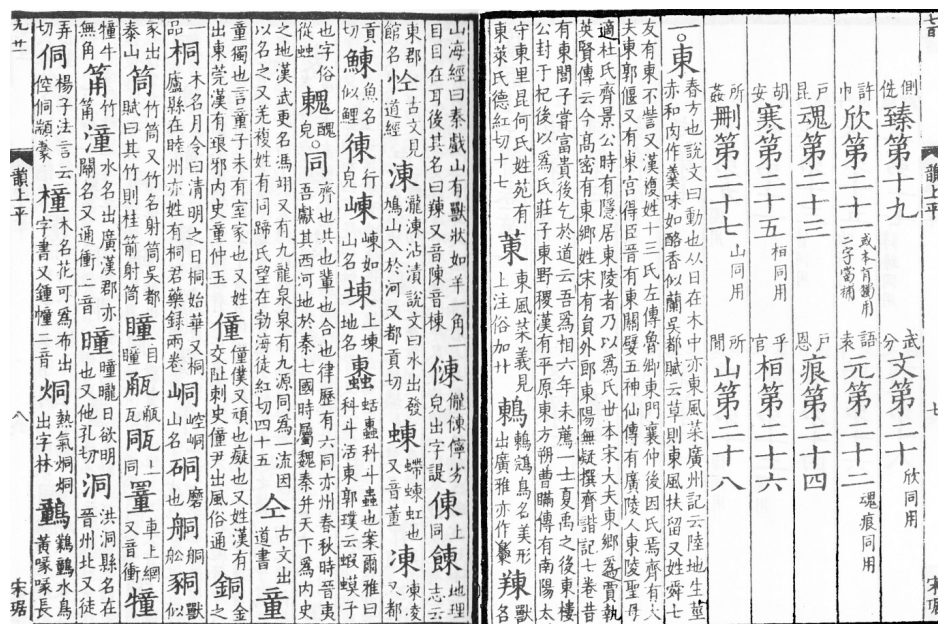 側詵臻第十九 武分文第二十 欣同用
許巾欣第二十一 或本有獨用二字當補 語袁元第二十二 魂痕同用
戶昆魂第二十三 戶恩痕第二十四
胡安寒第二十五 桓同用 乎官桓第二十六
所姦刪第二十七 山同用 所閒山第二十八
一〇東 春方也說文曰動也从日在木中亦東風菜廣州記云陸地生莖
赤和肉作羹味如酪香似蘭吳都賦云草則東風扶留又姓舜七
友有東不訾又漢複姓十三氏左傳魯卿東門襄仲後因氏焉齊有大
夫東郭偃又有東宮得臣晉有東關嬖五神仙傳有廣陵人東陵聖母
適杜氏齊景公時有隱居東陵者乃以爲氏世本宋大夫東鄉爲賈執
英賢傳云今高密有東鄉姓宋有員外郎東陽無疑撰齊諧記七卷昔
有東閭子嘗富貴後乞於道云吾爲相六年未薦一士夏禹之後東樓
公封于杞後以爲氏莊子東野稷漢有平原東方朔曹瞞傳有南陽太
守東里昆何氏姓苑有東萊氏德紅切十七 菄 東風菜義見上注俗加艹 鶇 鶇鵍鳥名美形出廣雅亦作 䍶 獸名
韻上平 七 宋琚
山海經曰秦戲山有獸狀如羊一角一目目在耳後其名曰䍶又音陳音棟 儱倲儜劣皃出字諟 倲 上同 餗 地理志云
東郡館名 古文見道經 涷 瀧涷沾漬說文曰水出發鳩山入於河又都貢切 蝀 螮蝀虹也又音董 凍 凍凌又都
貢切 鯟 魚名似鯉 行皃 崠 崠如山名 埬 上埬地名 蛞科斗蟲也案爾雅曰科斗活東郭璞云蝦蟆子
也字俗從䖵 醜皃 〇同 齊也共也輩也合也律歷有六同亦州春秋時晉夷吾獻其西河地於秦七國時屬魏秦并天下爲內史
之地漢武更名馮翊又有九龍泉泉有九源同爲一流因以名之又羌複姓有同蹄氏望在勃海徒紅切四十五 仝 古文出道書 童
童獨也言童子未有室家也又姓出東莞漢有琅邪內史童仲玉 僮 僮僕又頑也癡也又姓漢有交阯刺史僮尹出風俗通 銅 金之一
品 桐 木名月令曰清明之日桐始華又桐廬縣在睦州亦姓有桐君藥錄兩卷 峒 崆峒山名 硐 磨也 舩名 獸似
豕出泰山 筒 竹筒又竹名射筒吳都賦曰其竹則桂箭射筒 瞳 目瞳 瓦 同上 罿 車上網又音衝 犝
犝牛無角 竹 潼 水名出廣漢郡亦關名又通衝二音 曈 曈曨日欲明也又他孔切 洞 洪洞縣名在晉州北又徒
弄切 侗 楊子法言云倥侗顓蒙 橦 木名花可爲布出字書又鍾幢二音 烔 熱氣烔烔出字林 水鳥黃喙喙長
韻上平 八 宋琚